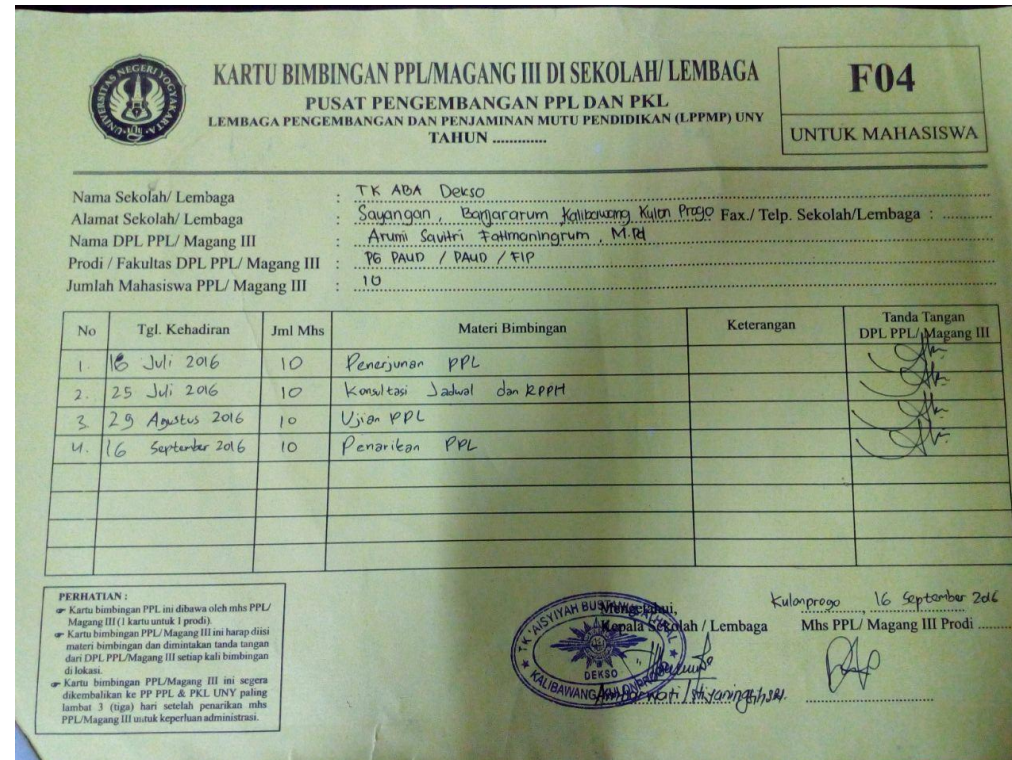 UNIVERSITAS NEGERI YOGYAKARTA
KARTU BIMBINGAN PPL/MAGANG III DI SEKOLAH/ LEMBAGA
PUSAT PENGEMBANGAN PPL DAN PKL
LEMBAGA PENGEMBANGAN DAN PENJAMINAN MUTU PENDIDIKAN (LPPMP) UNY
TAHUN .............
F04
UNTUK MAHASISWA
Nama Sekolah/ Lembaga : TK ABA Dekso
Alamat Sekolah/ Lembaga : Sayangan, Banjararum Kalibawang Kulon Progo Fax./ Telp. Sekolah/Lembaga : ............
Nama DPL PPL/ Magang III : Arumi Savitri Fatimaningrum, M.Pd
Prodi / Fakultas DPL PPL/ Magang III : PG PAUD / PAUD / FIP
Jumlah Mahasiswa PPL/ Magang III : 10
No Tgl. Kehadiran Jml Mhs Materi Bimbingan Keterangan Tanda Tangan
DPL PPL/ Magang III
1. 16 Juli 2016 10 Penerjunan PPL
2. 25 Juli 2016 10 Konsultasi Jadwal dan RPPH
3. 29 Agustus 2016 10 Ujian PPL
4. 16 September 2016 10 Penarikan PPL
PERHATIAN :
☞ Kartu bimbingan PPL ini dibawa oleh mhs PPL/
Magang III (1 kartu untuk 1 prodi).
☞ Kartu bimbingan PPL/ Magang III ini harap diisi
materi bimbingan dan dimintakan tanda tangan
dari DPL PPL/Magang III setiap kali bimbingan
di lokasi.
☞ Kartu bimbingan PPL/Magang III ini segera
dikembalikan ke PP PPL & PKL UNY paling
lambat 3 (tiga) hari setelah penarikan mhs
PPL/Magang III untuk keperluan administrasi.
Mengetahui,
Kepala Sekolah / Lembaga
TK 'AISYIYAH BUSTANUL ATHFAL
DEKSO
KALIBAWANG KULON PROGO
Kulonprogo, 16 September 2016
Mhs PPL/ Magang III Prodi .......